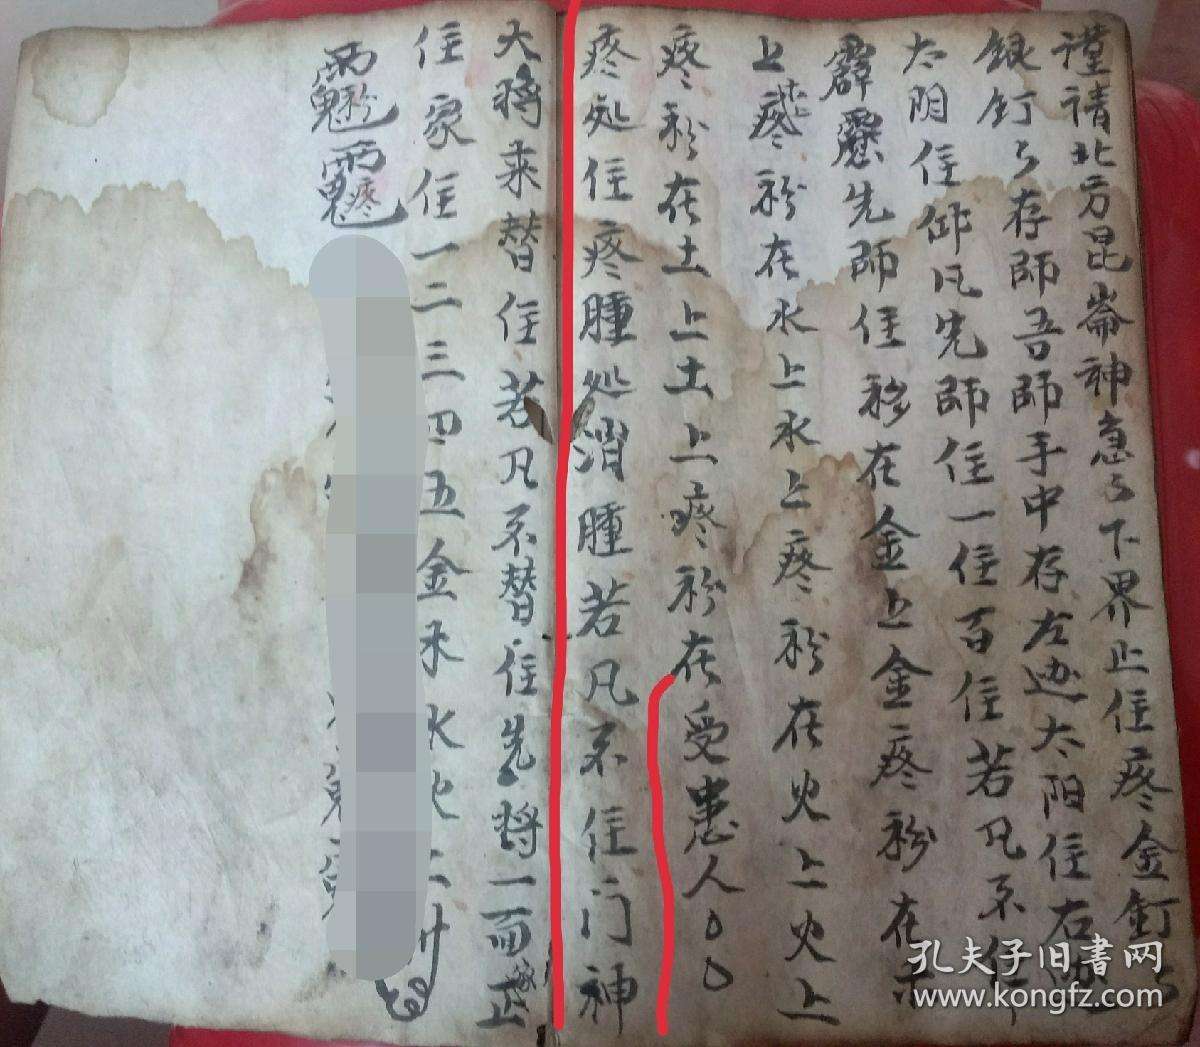 謹請北方昆崙神急ㄣ下界止住疼金釘ㄣ
銀釘ㄣ存師吾師手中存左边太阳住右边
太阴住仰凡先師住一住百住若凡不住
霹靂先師住移在金上金疼移在木
上疼移在水上水上疼移在火上火上
疼移在土上土上疼移在受患人
疼処住疼腫処消腫若凡不住门神
大将来替住若凡不替住先将一面正
住家住一二三四五金木水火土
孔夫子旧书网
www.kongfz.com